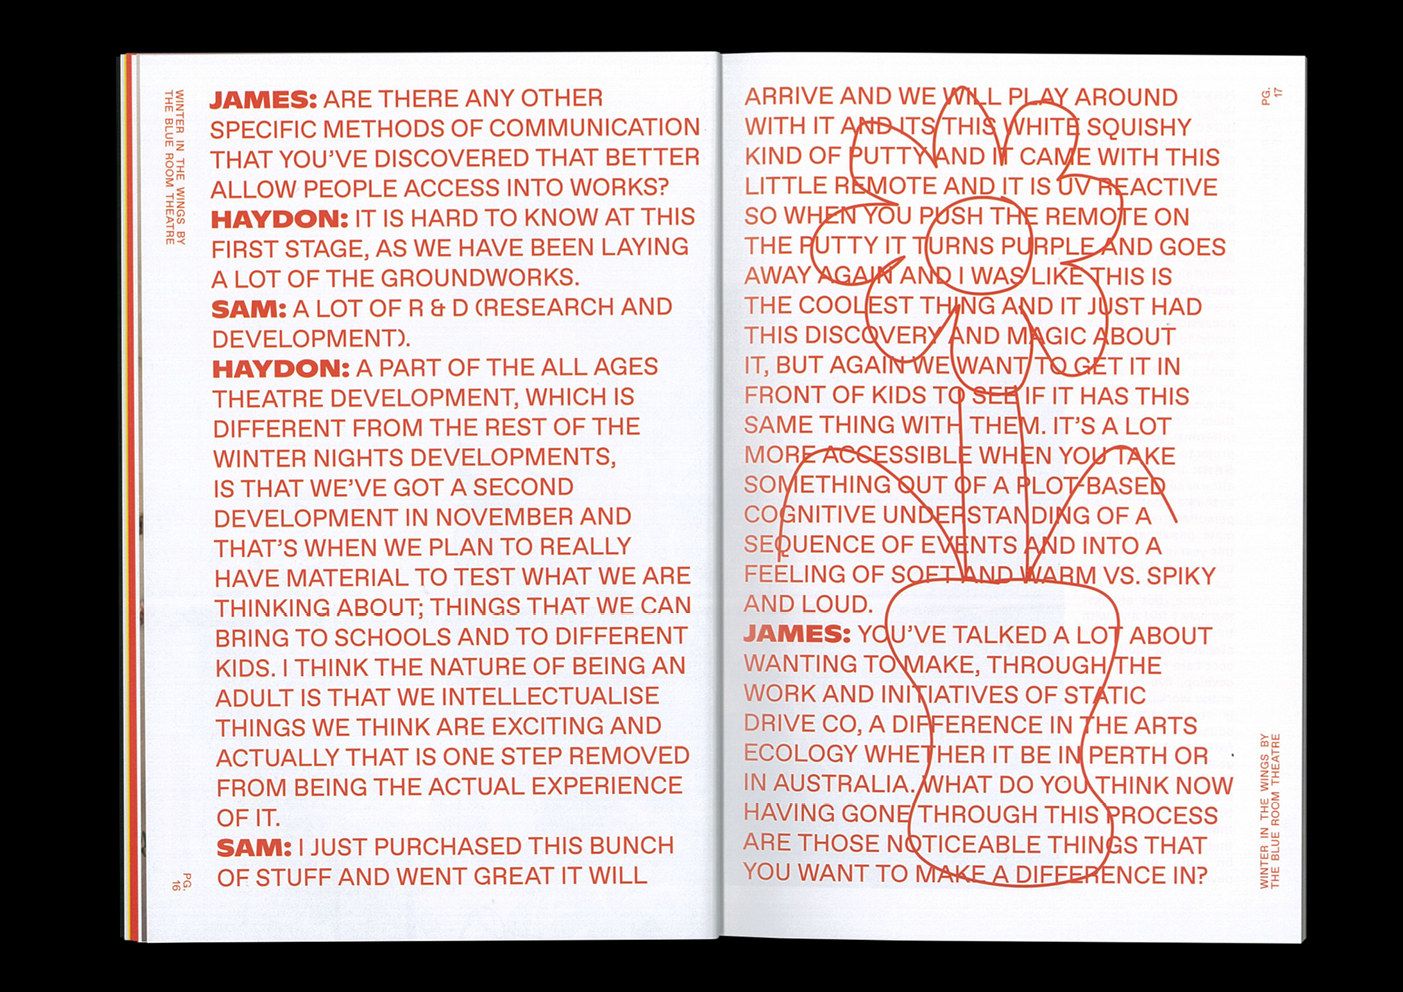 WINTER IN THE WINGS BY
THE BLUE ROOM THEATRE
JAMES: ARE THERE ANY OTHER
SPECIFIC METHODS OF COMMUNICATION
THAT YOU’VE DISCOVERED THAT BETTER
ALLOW PEOPLE ACCESS INTO WORKS?
HAYDON: IT IS HARD TO KNOW AT THIS
FIRST STAGE, AS WE HAVE BEEN LAYING
A LOT OF THE GROUNDWORKS.
SAM: A LOT OF R & D (RESEARCH AND
DEVELOPMENT).
HAYDON: A PART OF THE ALL AGES
THEATRE DEVELOPMENT, WHICH IS
DIFFERENT FROM THE REST OF THE
WINTER NIGHTS DEVELOPMENTS,
IS THAT WE’VE GOT A SECOND
DEVELOPMENT IN NOVEMBER AND
THAT’S WHEN WE PLAN TO REALLY
HAVE MATERIAL TO TEST WHAT WE ARE
THINKING ABOUT; THINGS THAT WE CAN
BRING TO SCHOOLS AND TO DIFFERENT
KIDS. I THINK THE NATURE OF BEING AN
ADULT IS THAT WE INTELLECTUALISE
THINGS WE THINK ARE EXCITING AND
ACTUALLY THAT IS ONE STEP REMOVED
FROM BEING THE ACTUAL EXPERIENCE
OF IT.
SAM: I JUST PURCHASED THIS BUNCH
OF STUFF AND WENT GREAT IT WILL
PG.
16
ARRIVE AND WE WILL PLAY AROUND
WITH IT AND ITS THIS WHITE SQUISHY
KIND OF PUTTY AND IT CAME WITH THIS
LITTLE REMOTE AND IT IS UV REACTIVE
SO WHEN YOU PUSH THE REMOTE ON
THE PUTTY IT TURNS PURPLE AND GOES
AWAY AGAIN AND I WAS LIKE THIS IS
THE COOLEST THING AND IT JUST HAD
THIS DISCOVERY AND MAGIC ABOUT
IT, BUT AGAIN WE WANT TO GET IT IN
FRONT OF KIDS TO SEE IF IT HAS THIS
SAME THING WITH THEM. IT’S A LOT
MORE ACCESSIBLE WHEN YOU TAKE
SOMETHING OUT OF A PLOT-BASED
COGNITIVE UNDERSTANDING OF A
SEQUENCE OF EVENTS AND INTO A
FEELING OF SOFT AND WARM VS. SPIKY
AND LOUD.
JAMES: YOU’VE TALKED A LOT ABOUT
WANTING TO MAKE, THROUGH THE
WORK AND INITIATIVES OF STATIC
DRIVE CO, A DIFFERENCE IN THE ARTS
ECOLOGY WHETHER IT BE IN PERTH OR
IN AUSTRALIA. WHAT DO YOU THINK NOW
HAVING GONE THROUGH THIS PROCESS
ARE THOSE NOTICEABLE THINGS THAT
YOU WANT TO MAKE A DIFFERENCE IN?
PG.
17
WINTER IN THE WINGS BY
THE BLUE ROOM THEATRE